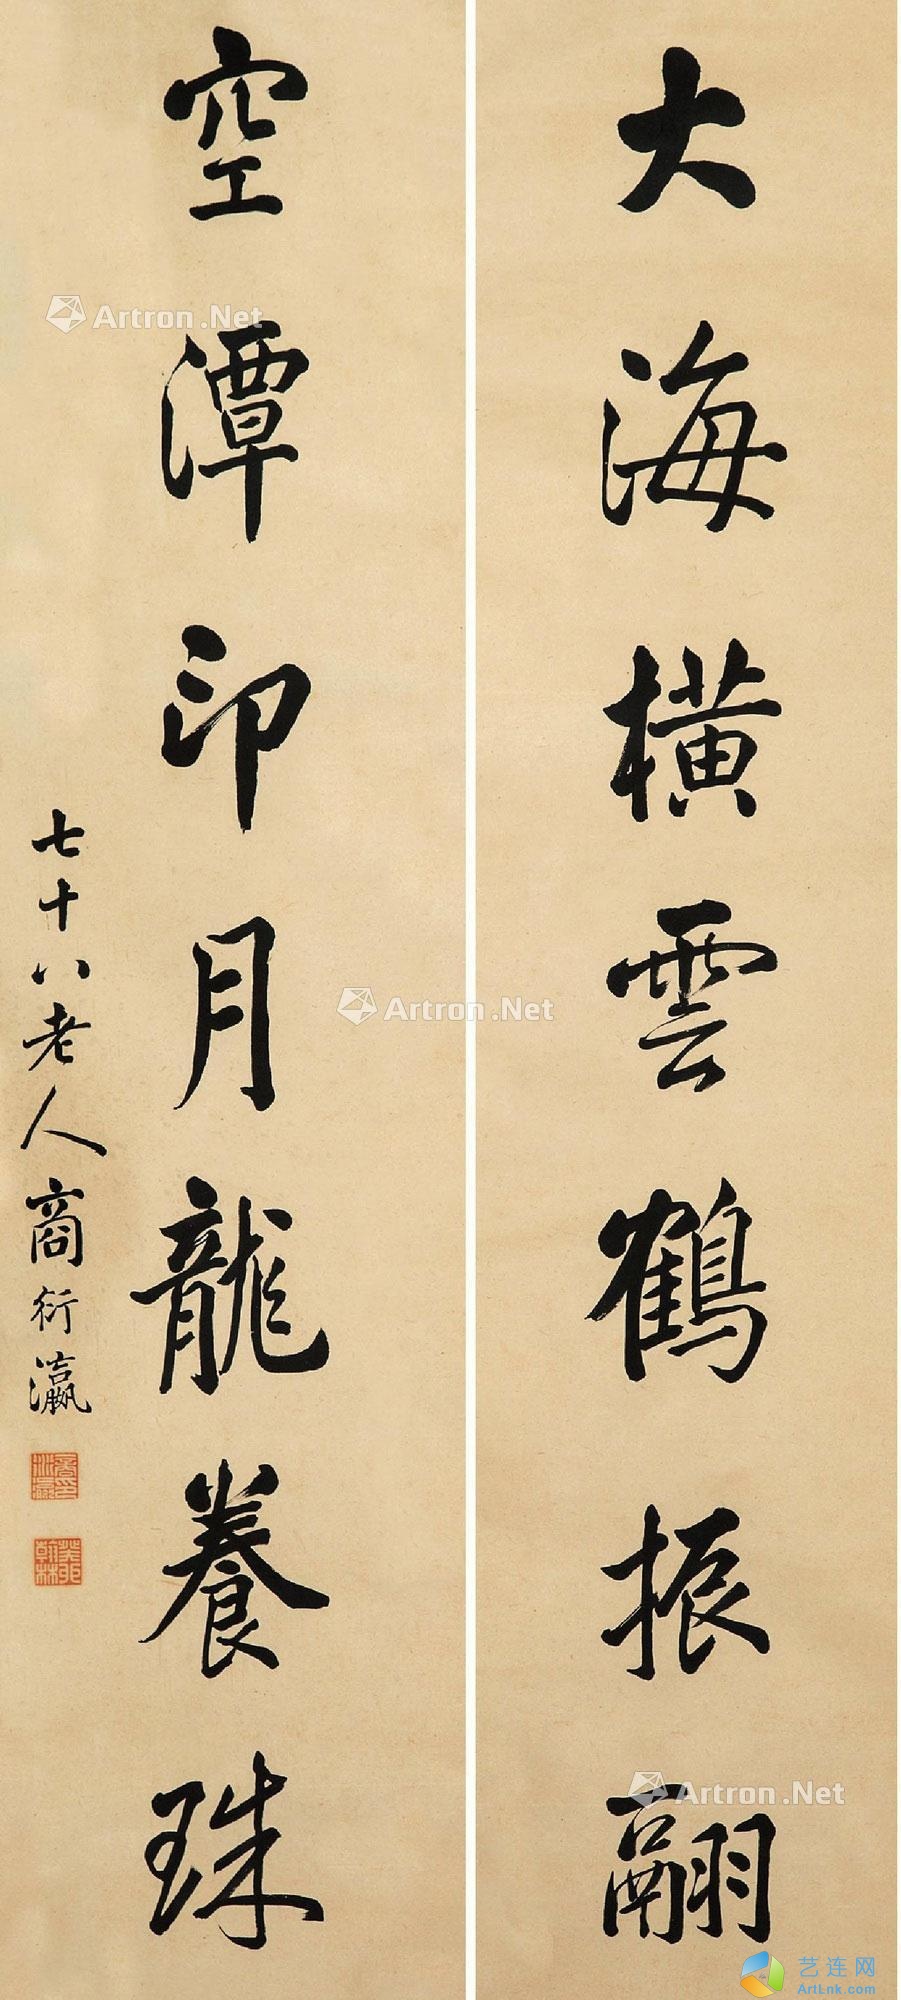 大海橫雲鶴振翮
空潭印月龍養珠
七十八老人商衍瀛
商衍瀛印
癸卯翰林
Artron.Net
Artron.Net
Artron.Net
艺连网
ArtLnk.com